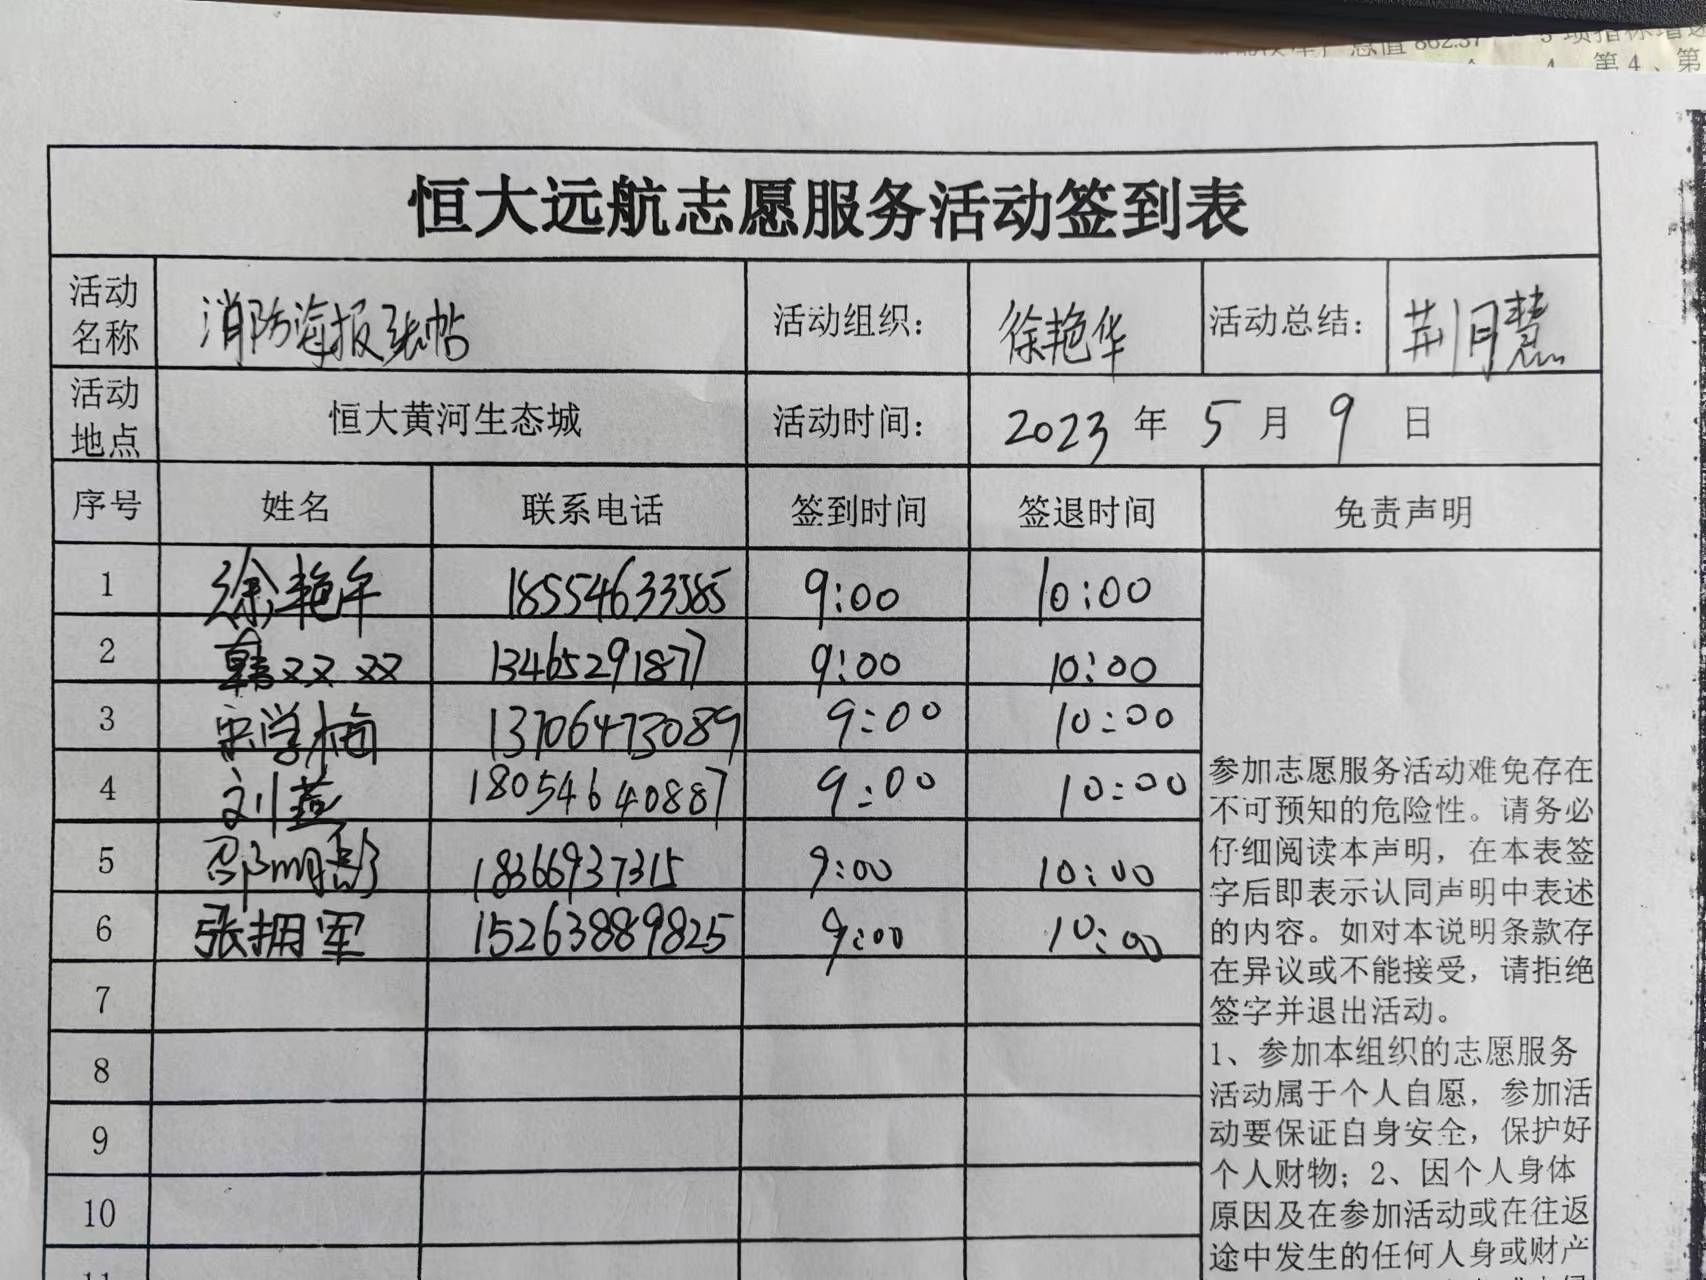 恒大远航志愿服务活动签到表
活动名称 消防海报张帖 活动组织： 徐艳华 活动总结： 荆月慧
活动地点 恒大黄河生态城 活动时间： 2023 年 5 月 9 日
序号 姓名 联系电话 签到时间 签退时间 免责声明
1 徐艳华 18554633585 9:00 10:00
2 韩双双 13465291877 9:00 10:00
3 宋学梅 13706473089 9:00 10:00
4 刘燕 18054640887 9:00 10:00
5 邵明彭 18366937315 9:00 10:00
6 张拥军 15263889825 9:00 10:00
7
8
9
10
11
参加志愿服务活动难免存在
不可预知的危险性。请务必
仔细阅读本声明，在本表签
字后即表示认同声明中表述
的内容。如对本说明条款存
在异议或不能接受，请拒绝
签字并退出活动。
1、参加本组织的志愿服务
活动属于个人自愿，参加活
动要保证自身安全，保护好
个人财物；2、因个人身体
原因及在参加活动或在往返
途中发生的任何人身或财产